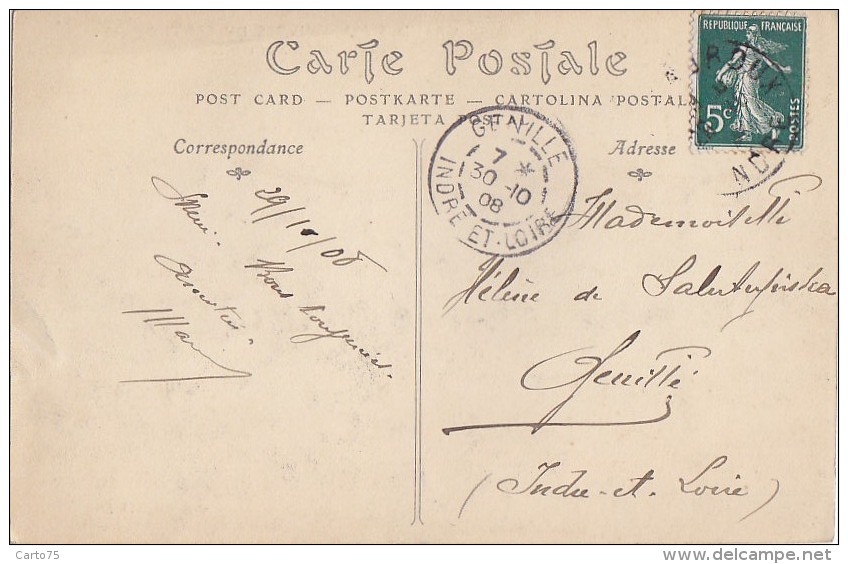 Carte Postale
POST CARD — POSTKARTE — CARTOLINA POSTALE
TARJETA POSTAL
Correspondance
Adresse
REPUBLIQUE FRANÇAISE
5c
POSTES
GENILLÉ
7 *
30 -10
08
INDRE-ET-LOIRE
INDRE
29/10/08
Merci. Vous
Amitiés
Mademoiselle
Hélène de
Genillé
(Indre-et-Loire)
Carto75
www.delcampe.net